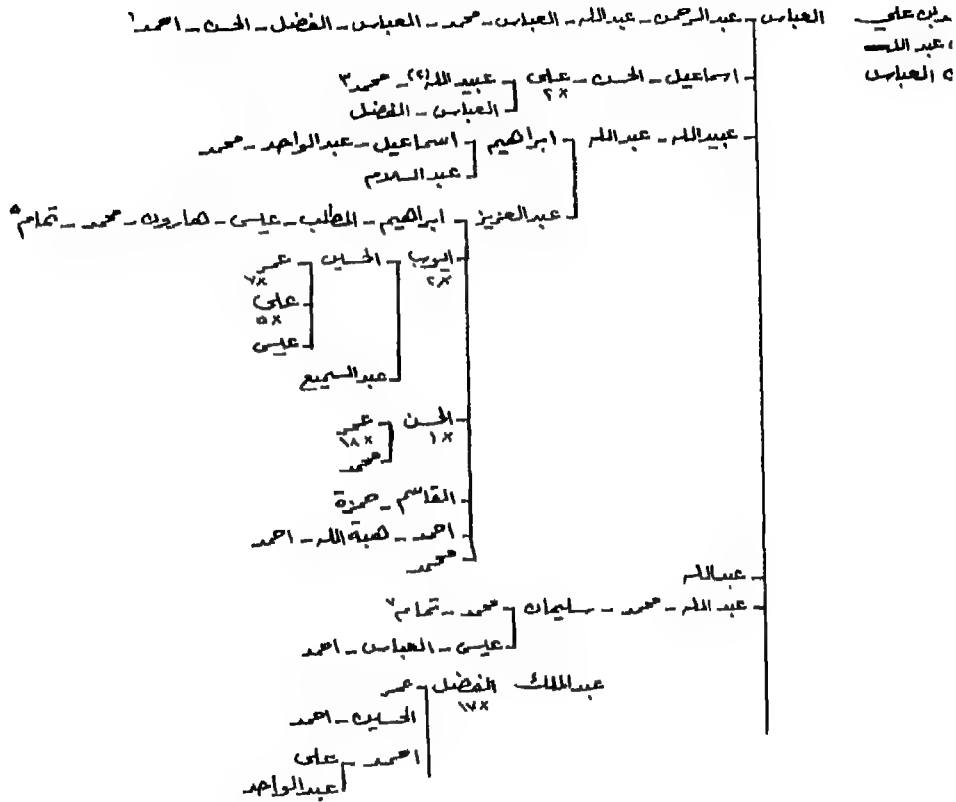 بن علي العباس - عبدالرحمن - عبدالله - العباس - محمد - العباس - الفضل - الحسن - احمد ١
عبد الله
العباس
اسماعيل - الحسن - على - عبيد الله (٢٢) - محمد ٣
×٢
العباس - الفضل
عبيدالله - عبدالله - ابراهيم - اسماعيل - عبدالواحد - محمد
عبدالسلام
عبدالعزيز - ابراهيم - المطلب - عيسى - هارون - محمد - تمام ٥
ايوب - الحسين - عمر
×٢ ×٧
على
×٥
عيسى
عبدالسميع
الحسن - عمر
×١ ×١٨
محمد
القاسم - حمزة
احمد - هبة الله - احمد
محمد
عبدالله
عبد الله - محمد - سليمان - محمد - تمام ٧
عيسى - العباس - احمد
عبدالملك الفضل - عمر
×١٧
الحسين - احمد
احمد - على
عبدالواحد